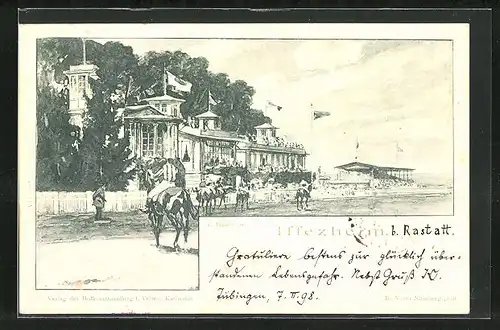 Iffezheim. b. Rastatt.
Gratuliere bestens zur glücklich über-
standenen Lebensgefahr. Nebst Gruß
Tübingen, 7. II. 98.
Verlag der Hofbuchhandlung Karlsruhe